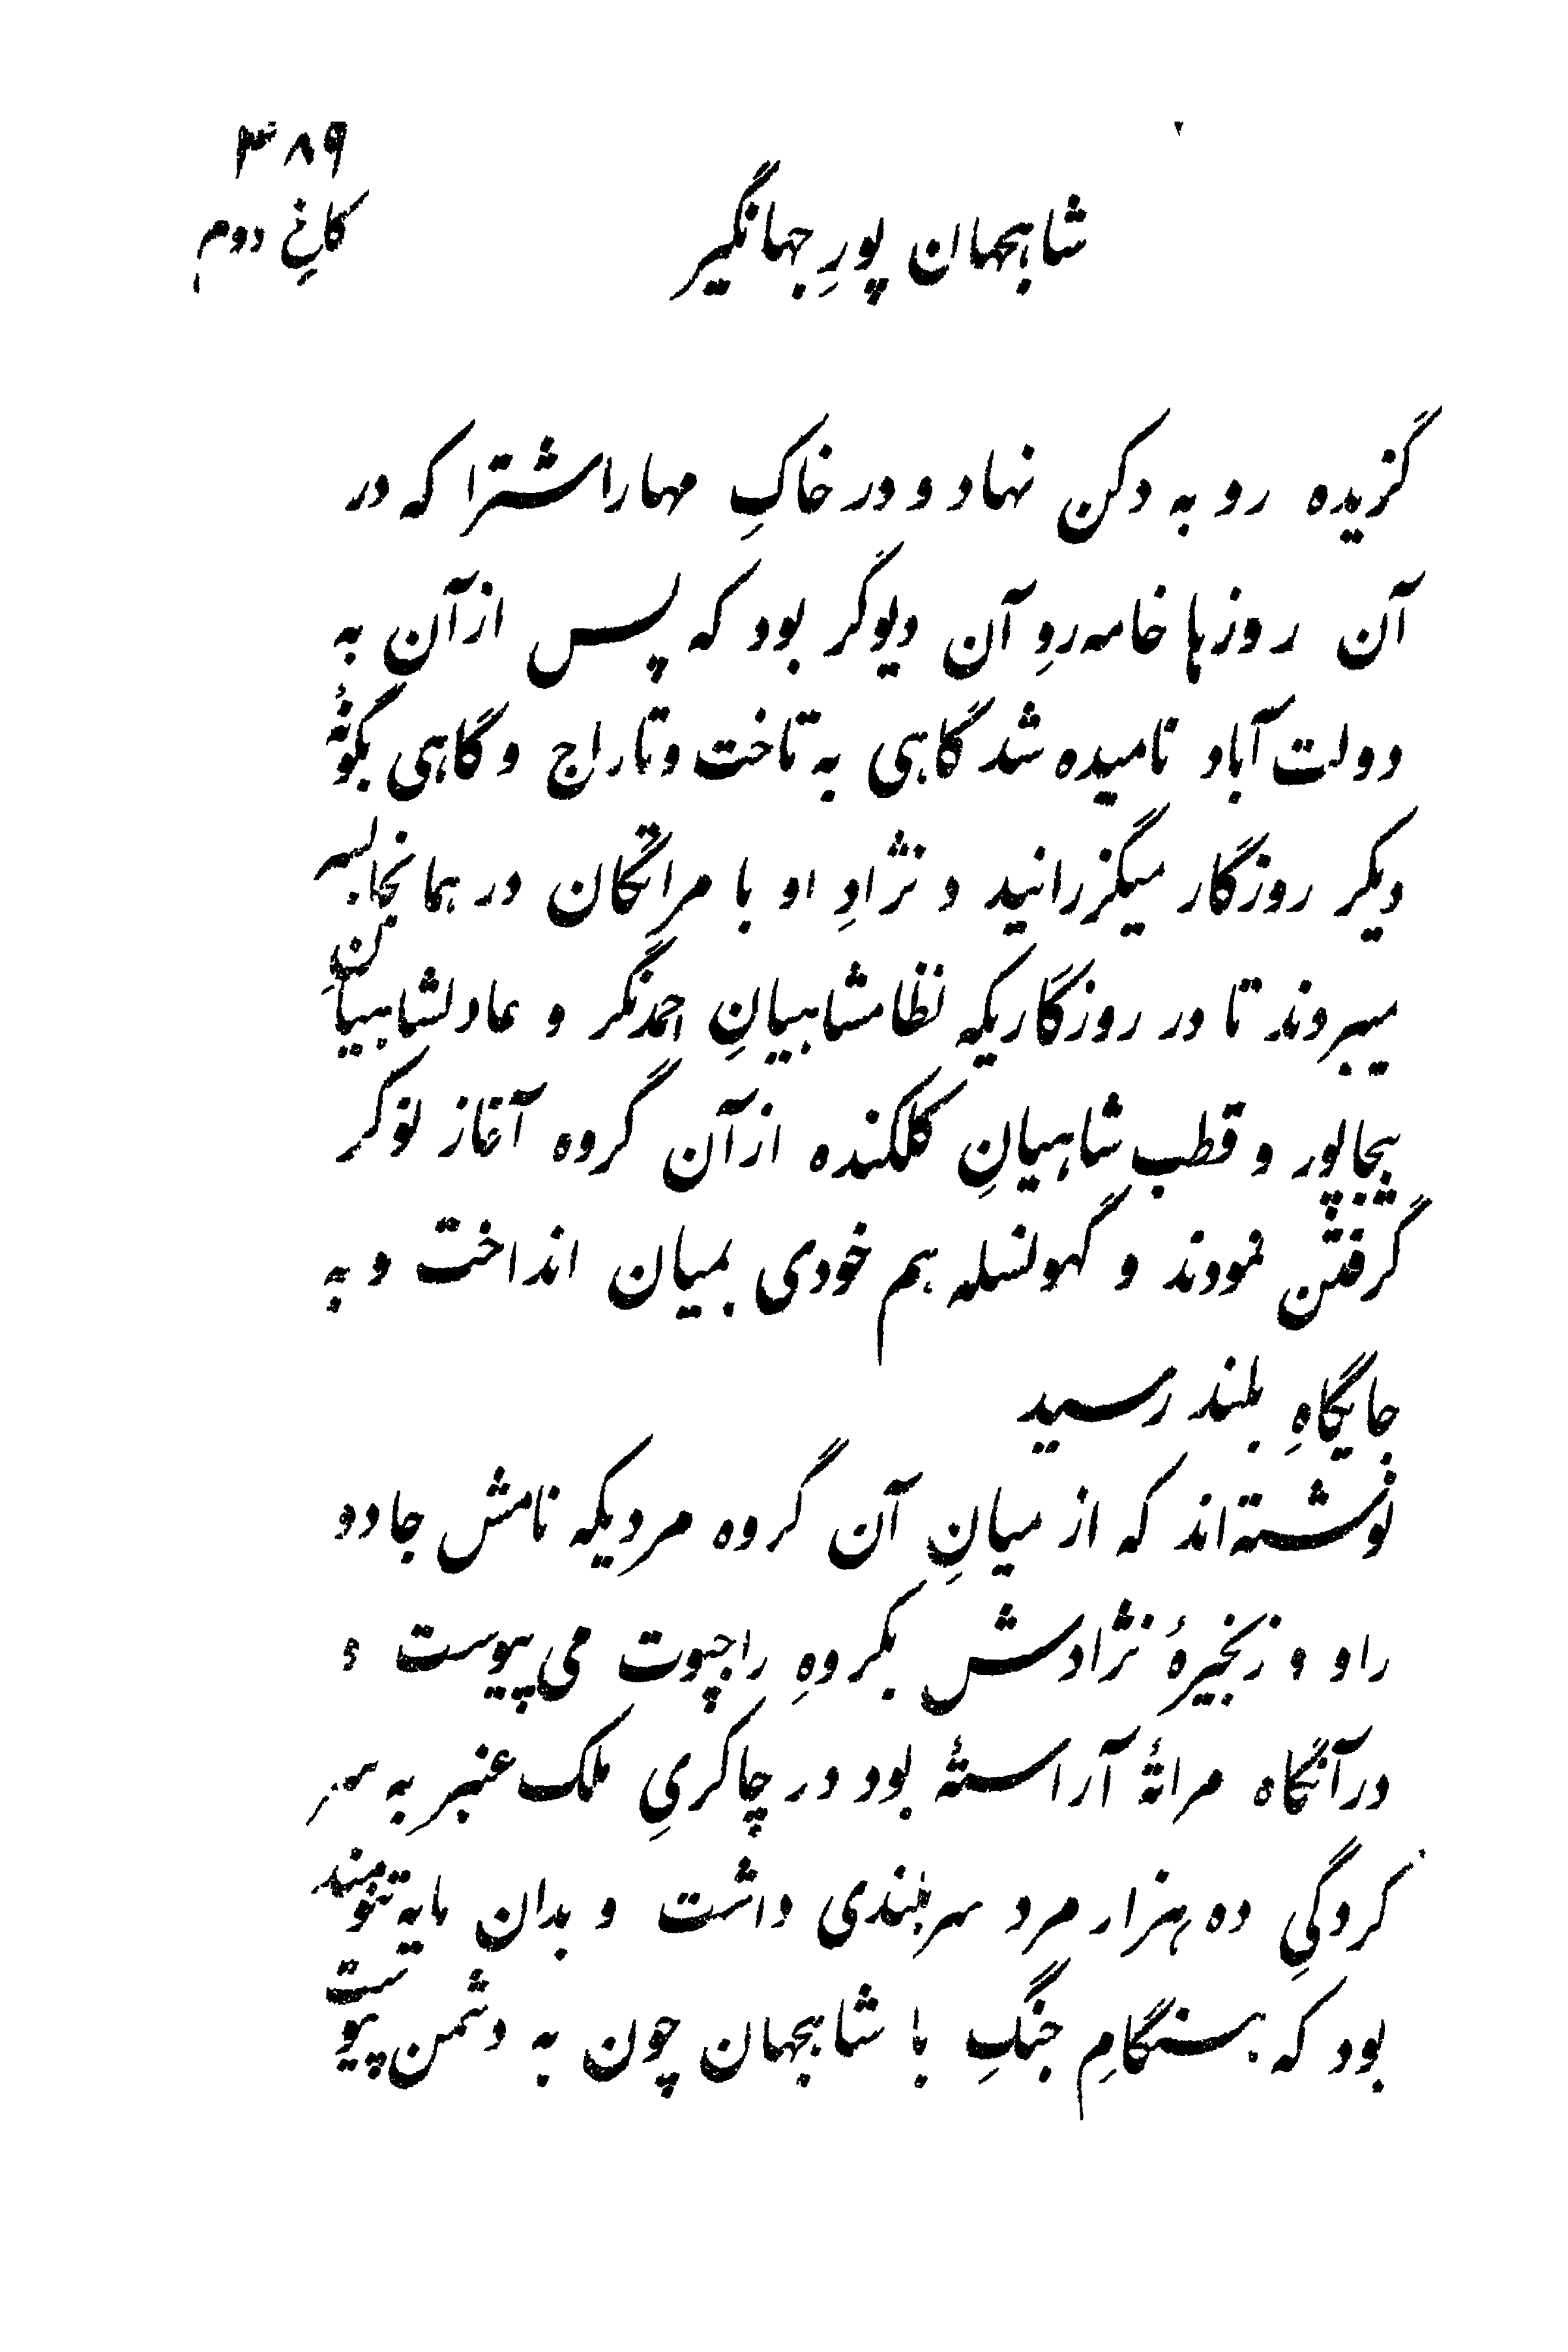 ۳۸۹
کاخِ دوم
شاهجهان پورِ جهانگیر
گزیده رو به دکن نهاد و در خاکِ مهاراشترا که در
آن روزها خامه‌روِ آن دیوگر بود که پس ازآن به
دولت آباد نامیده شد گاهی به تاخت و تاراج و گاهی بگونهٔ
دیگر روزگار میگزرانید و نژادِ او با مراتگان در همانجا بسر
میبردند تا در روزگاریکه نظامشاهیانِ احمدنگر و عادلشاهیانِ
بیجاپور و قطب شاهیانِ کلکنده ازآن گروه آغاز نوکر
گرفتن نمودند و گهونسله هم خودی بمیان انداخت و به
جایگاهِ بلند رسید
نوشته‌اند که از میانِ آن گروه مردیکه نامش جادو
راو و زنجیرهٔ نژادش بگروهِ راجپوت می پیوست و
درآنگاه مراتهٔ آراستهٔ بود در چاکریِ ملک عنبر به سر
کردگیِ ده هزار مرد سربلندی داشت و بدان مایه تنومند
بود که هنگامِ جنگِ با شاهجهان چون به دشمن پیوست